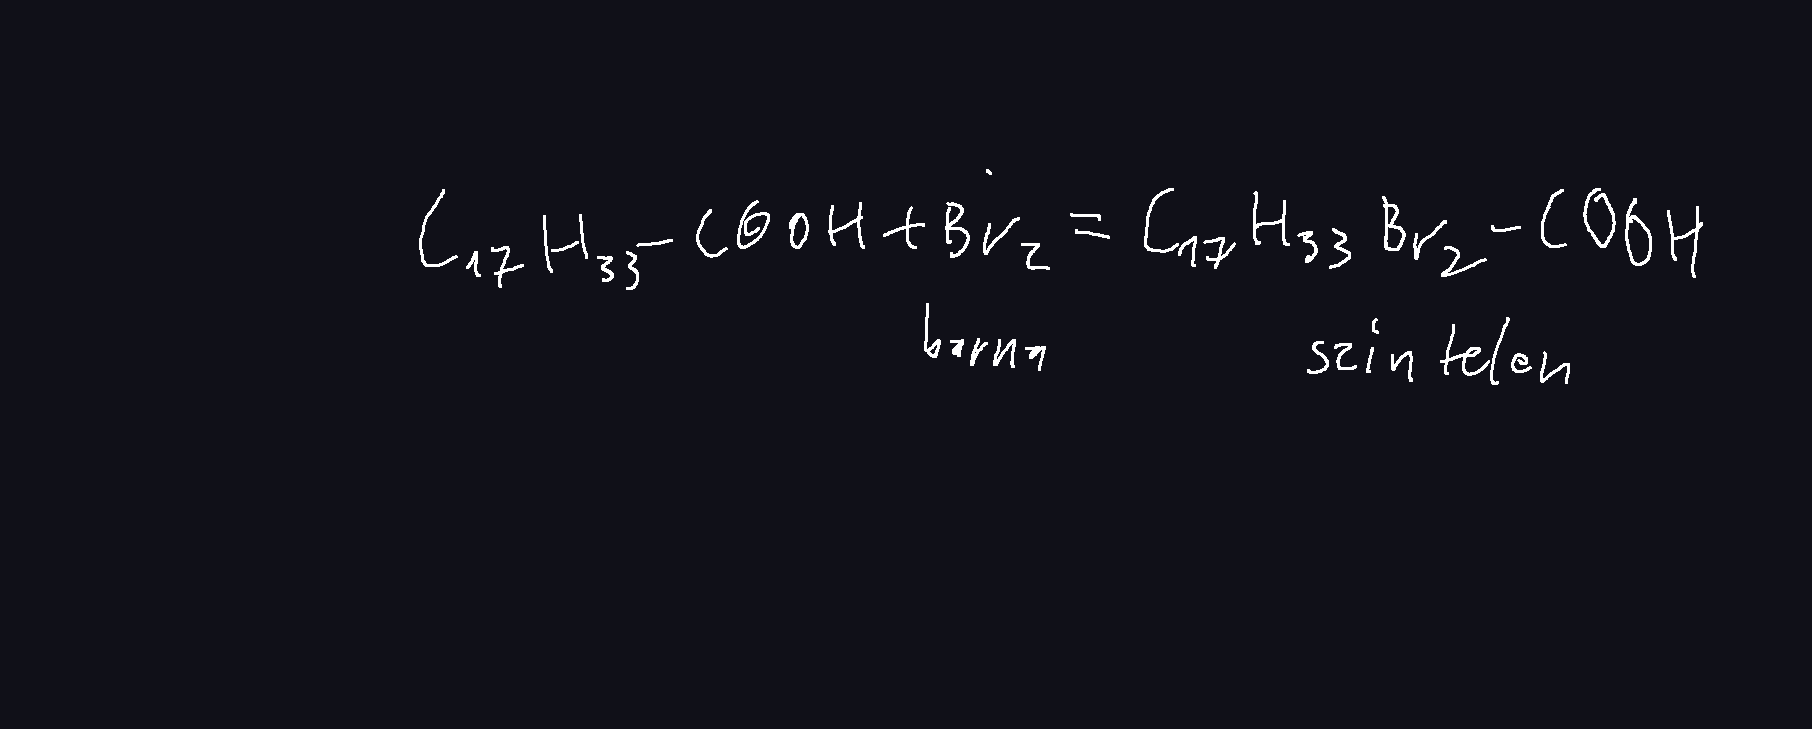 C₁₇H₃₃-COOH+Br₂=C₁₇H₃₃Br₂-COOH
barna szintelen